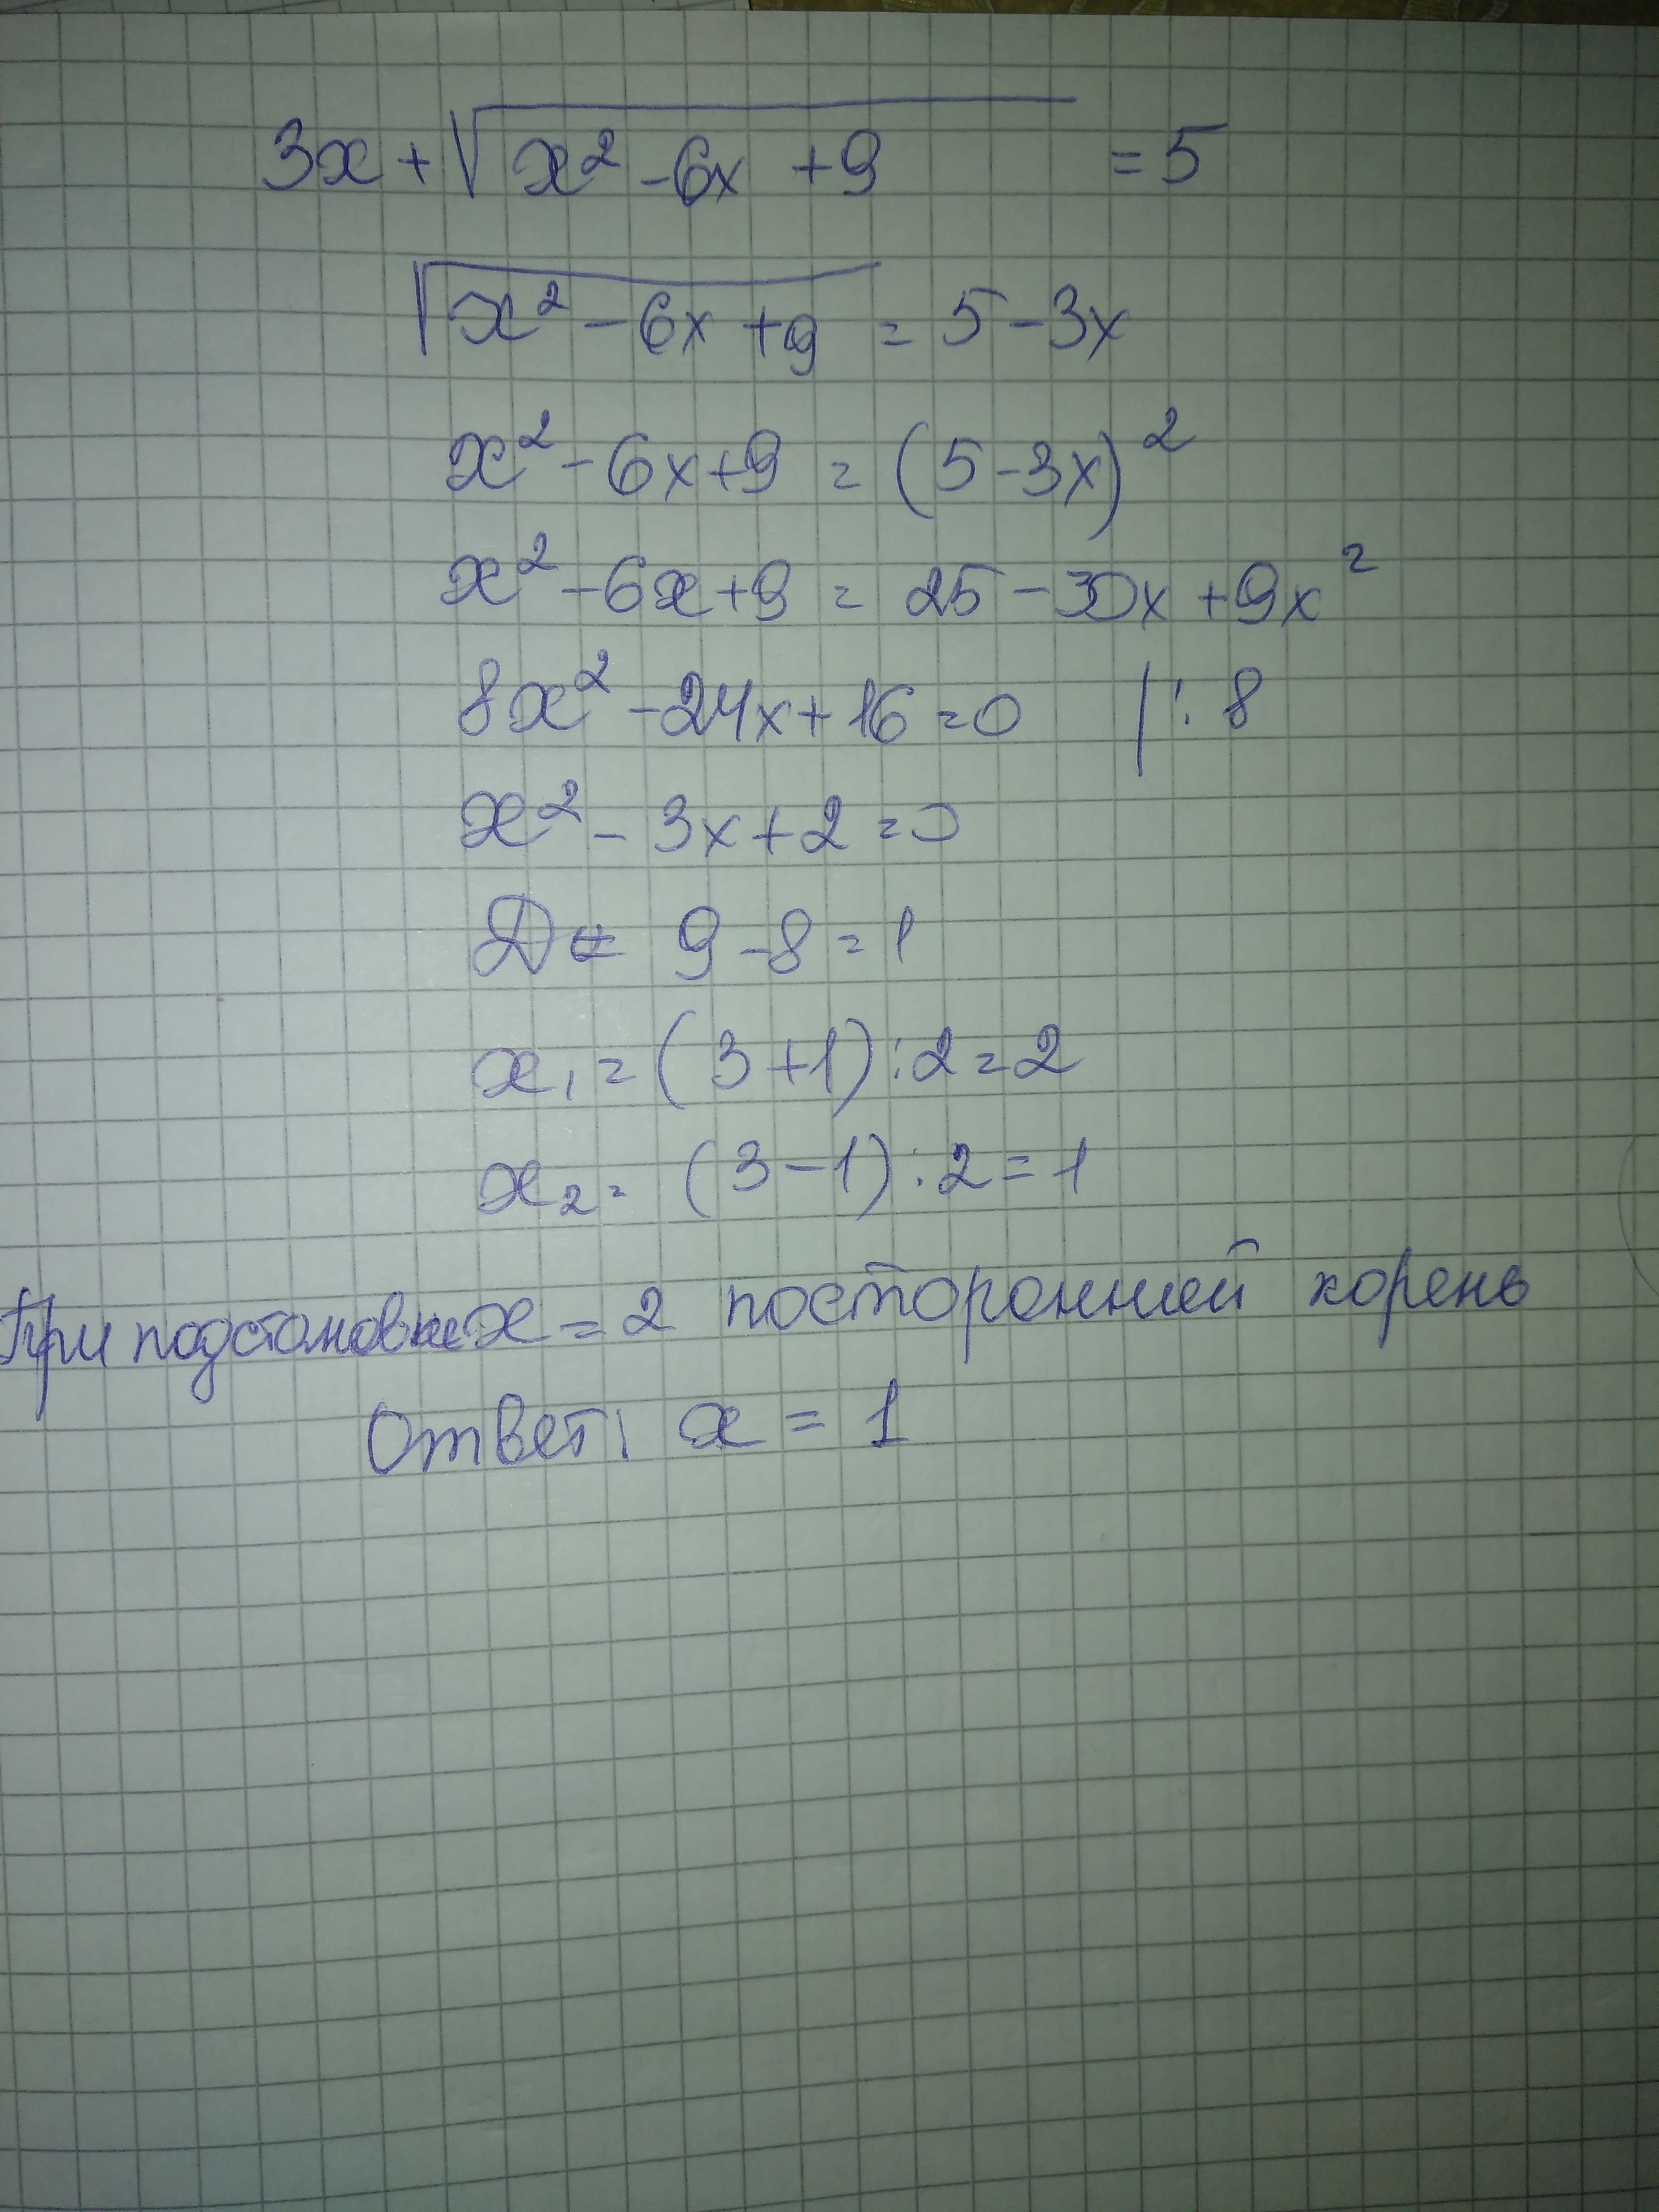 3x + √(x² - 6x + 9) = 5
√(x² - 6x + 9) = 5 - 3x
x² - 6x + 9 = (5 - 3x)²
x² - 6x + 9 = 25 - 30x + 9x²
8x² - 24x + 16 = 0 | : 8
x² - 3x + 2 = 0
D = 9 - 8 = 1
x₁ = (3 + 1) : 2 = 2
x₂ = (3 - 1) : 2 = 1
При подстановке x = 2 посторонний корень
Ответ: x = 1